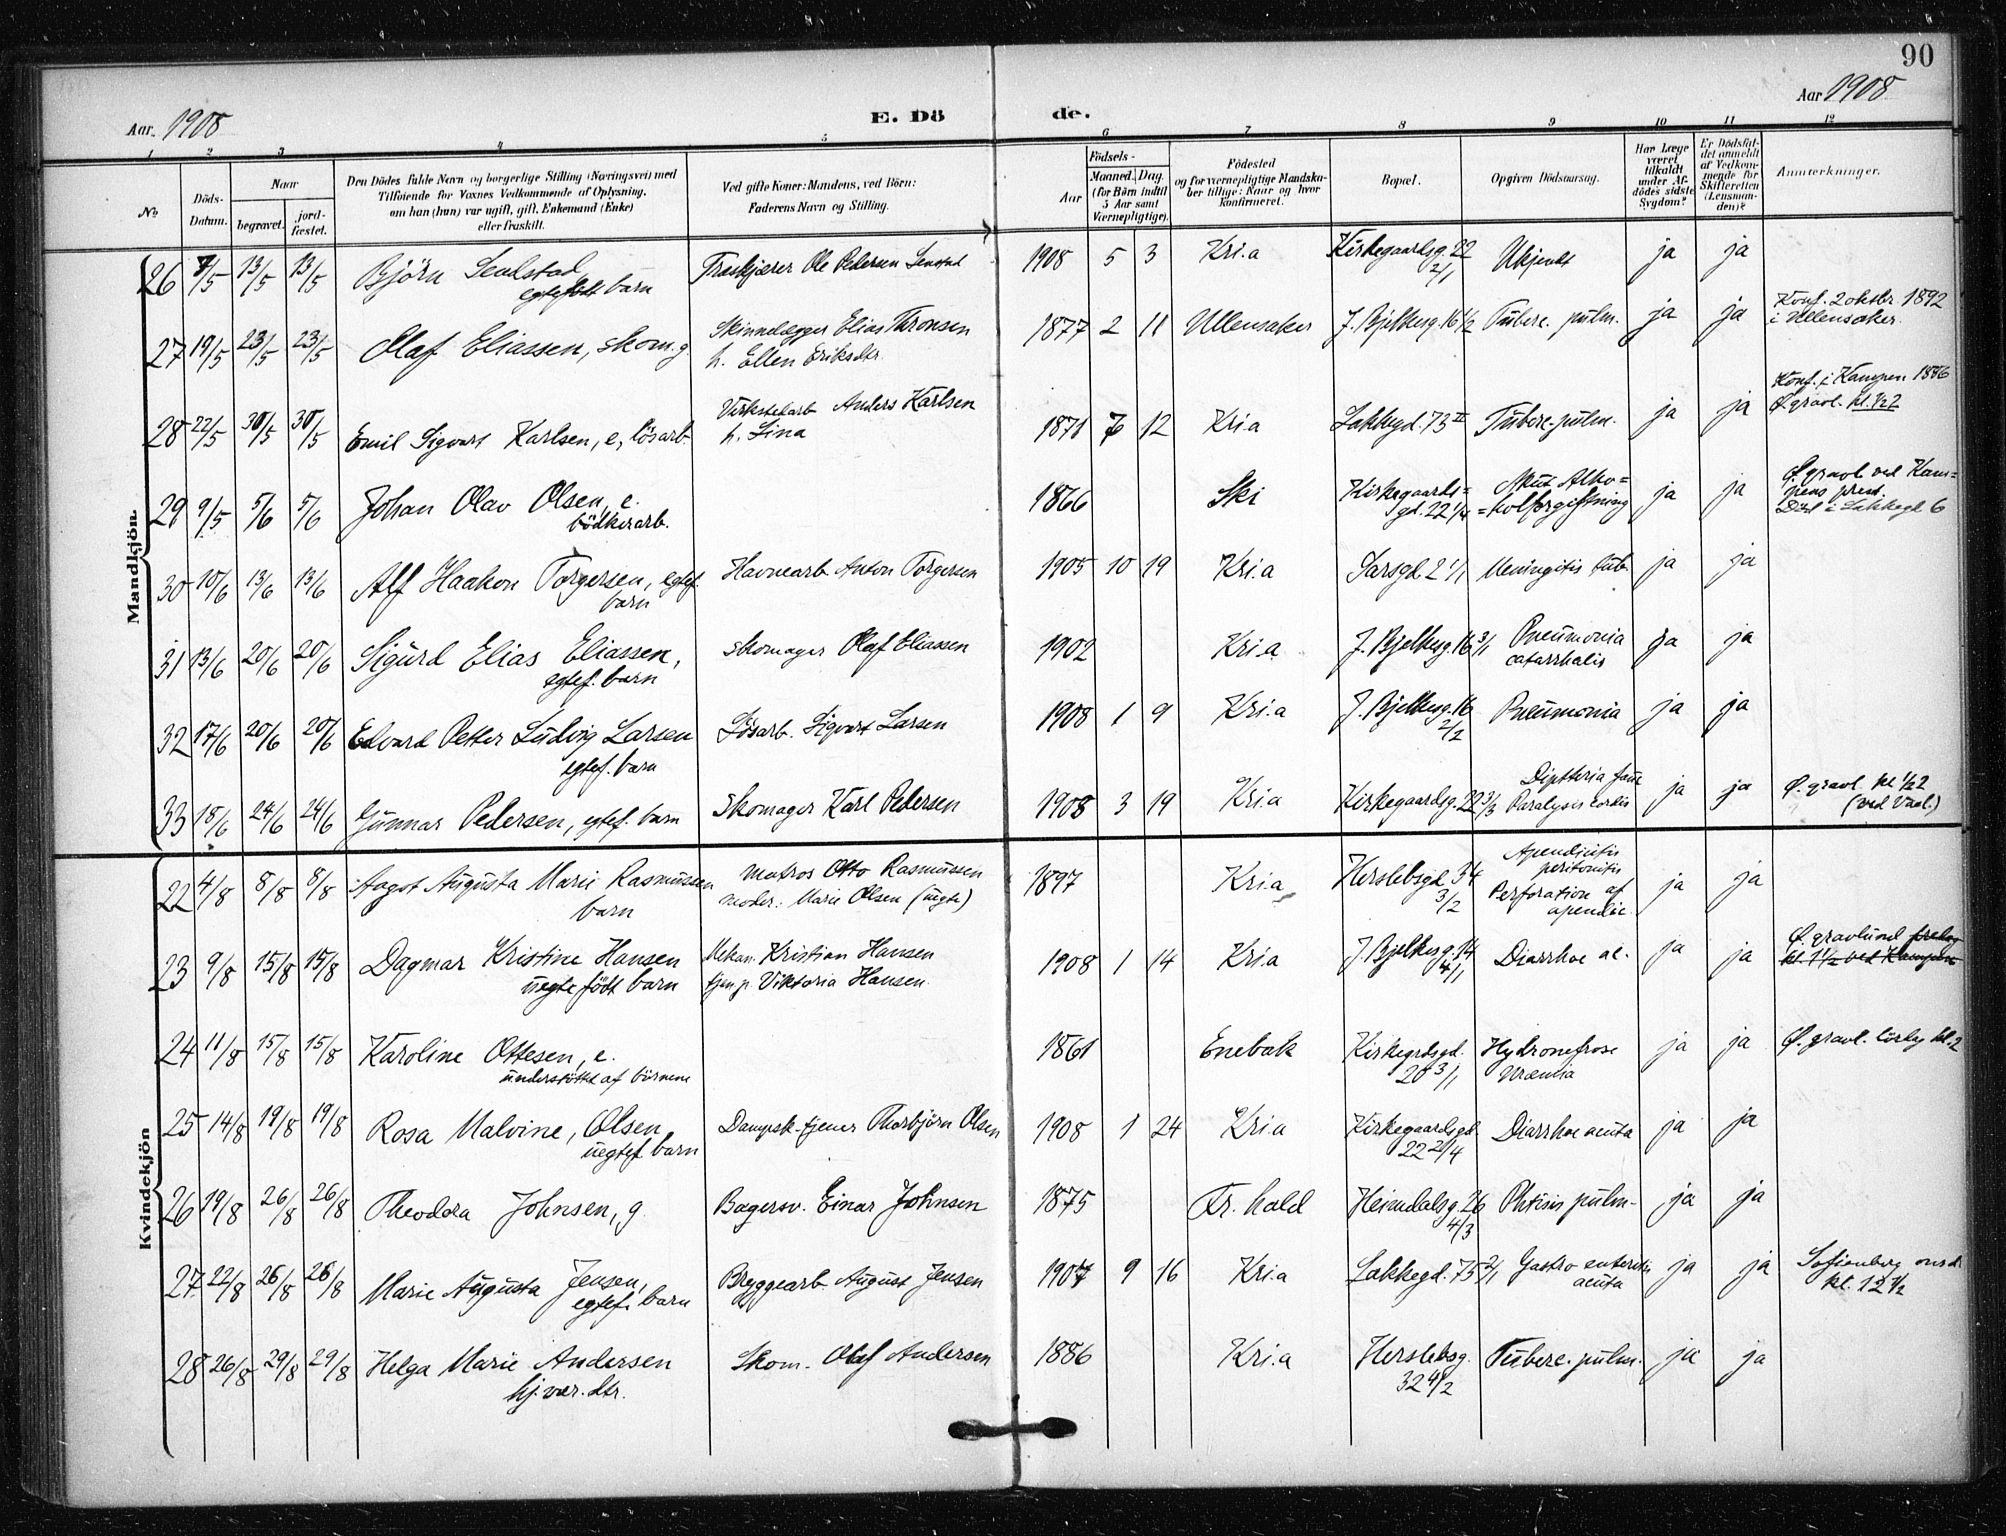 90
Aar. 1908
E. Dö de.
Aar 1908
1 2 3 4 5 6 7 8 9 10 11 12
No
Döds-Datum.
Naar
begravet.
jord-fæstet.
Den Dödes fulde Navn og borgerlige Stilling (Næringsvei) med
Tilföiende for Voxnes Vedkommende af Oplysning,
om han (hun) var ugift, gift, Enkemand (Enke)
eller fraskilt.
Ved gifte Koner: Mandens, ved Börn:
Faderens Navn og Stilling.
Födsels-
Aar
Maaned. Dag.
(for Börn indtil
5 Aar samt
Værnepligtige).
Födested
og for vernepligtige Mandska-
ber tillige: Naar og hvor
konfirmeret.
Bopæl.
Opgiven Dödsaarsag.
Har Læge
været
tilkaldt
under Af-
dödes sidste
Sygdom?
Er Dödsfal-
det anmeldt
af Vedkom-
mende for
Skifteretten
(Lensman-
den)?
Anmerkninger.
Mandkjön.
26 7/5 13/5 13/5 Björn Senlstad egtefödt barn Træskjærer Ole Pedersen Senstad 1908 5 3 Kri.a Kirkegaardsg. 22 2/1 Ukjendt ja ja
27 19/5 23/5 23/5 Olaf Eliassen, skom. g. Skinnelægger Elias Thronsen h. Ellen Eriksdtr. 1877 2 11 Ullensaker J. Bjelkesg. 16 1/2 Tuberc. pulm. ja ja Konf. 2 oktbr. 1892 i Ullensaker.
28 22/5 30/5 30/5 Emil Sigvart Karlsen, e, lösarb. Virkstedarb Anders Karlsen h. Lina 1871 7 12 Kri.a Lakkegd. 73 II Tuberc. pulm. ja ja Konf. i Kampen 1886 Ø. gravl. kl. 1/2 2
29 9/5 5/6 5/6 Johan Olav Olsen, e. bödkerarb. 1866 Ski Kirkegaards= gd. 22 1/4 Akut Alko= =holforgiftning ja ja Ø. gravl. ved Kam= pens prest. Död i Lakkegd 6
30 10/6 13/6 13/6 Alf Haakon Torgersen, egtef. barn Havnearb. Anton Torgersen 1905 10 19 Kri.a Sarsgd. 2 1/1 Meningitis tub. ja ja
31 13/6 20/6 20/6 Sigurd Elias Eliassen, egtef. barn Skomager Olaf Eliassen 1902 Kri.a J. Bjelkesg. 16 3/1 Pneumonia catarrhalis ja ja
32 17/6 20/6 20/6 Edvard Petter Ludvig Larsen egtef. barn Lösarb. Sigvart Larsen 1908 1 9 Kri.a J. Bjelkesg. 16 2/2 Pneumonia ja ja
33 18/6 24/6 24/6 Gunnar Pedersen, egtef. barn Skomager Karl Pedersen 1908 3 19 Kri.a Kirkegaardsg. 22 3/3 Diptteria Paralysis cordis ja ja Ø. gravl. kl 1/2 2 (ved Vaal.)
Kvindekjön
22 4/8 8/8 8/8 Aagot Augusta Marie Rasmussen barn matros Otto Rasmussen moder: Marie Olsen (uegte) 1897 Kria Herslebsgd. 34 3/2 Apendicitis peritonitis Perforation af apendic. ja ja
23 9/8 15/8 15/8 Dagmar Kristine Hansen uegte födt barn Mekan. Kristian Hansen tjen.p. Viktoria Hansen. 1908 1 14 Kri.a J. Bjelkesg. 14 4/1 Diarrhoe ac. ja ja Ø. gravlund kl. 1 1/2 ved Kampen
24 11/8 15/8 15/8 Karoline Ottesen, e. understöttet af börnene 1861 Enebak Kirkegrdsgd. 20 3/1 Hydronefrose Uræmia ja ja Ø. gravl. lördg kl. 2
25 14/8 19/8 19/8 Rosa Malvine, Olsen uegtef barn Dampsk.-tjener Thorbjörn Olsen 1908 1 24 Kria Kirkegaardsgd. 22 2/4 Diarrhoe acuta ja ja
26 19/8 26/8 26/8 Theodora Johnsen, g. Bagersv. Einar Johnsen 1875 Fr. hald Heimdalsg. 26 4/3 Phtisis pulm. ja ja
27 22/8 26/8 26/8 Marie Augusta Jensen, egtef. barn Bryggearb. August Jensen 1907 9 16 Kri.a Lakkegd. 75 2/1 Gastro enteritis acuta ja ja Sofienberg onsd. kl. 12 1/2
28 26/8 29/8 29/8 Helga Marie Andersen hj. vær. dtr. Skom. Olaf Andersen 1886 Kri.a Herslebsg. 32 4/2 Tuberc. pulm. ja ja